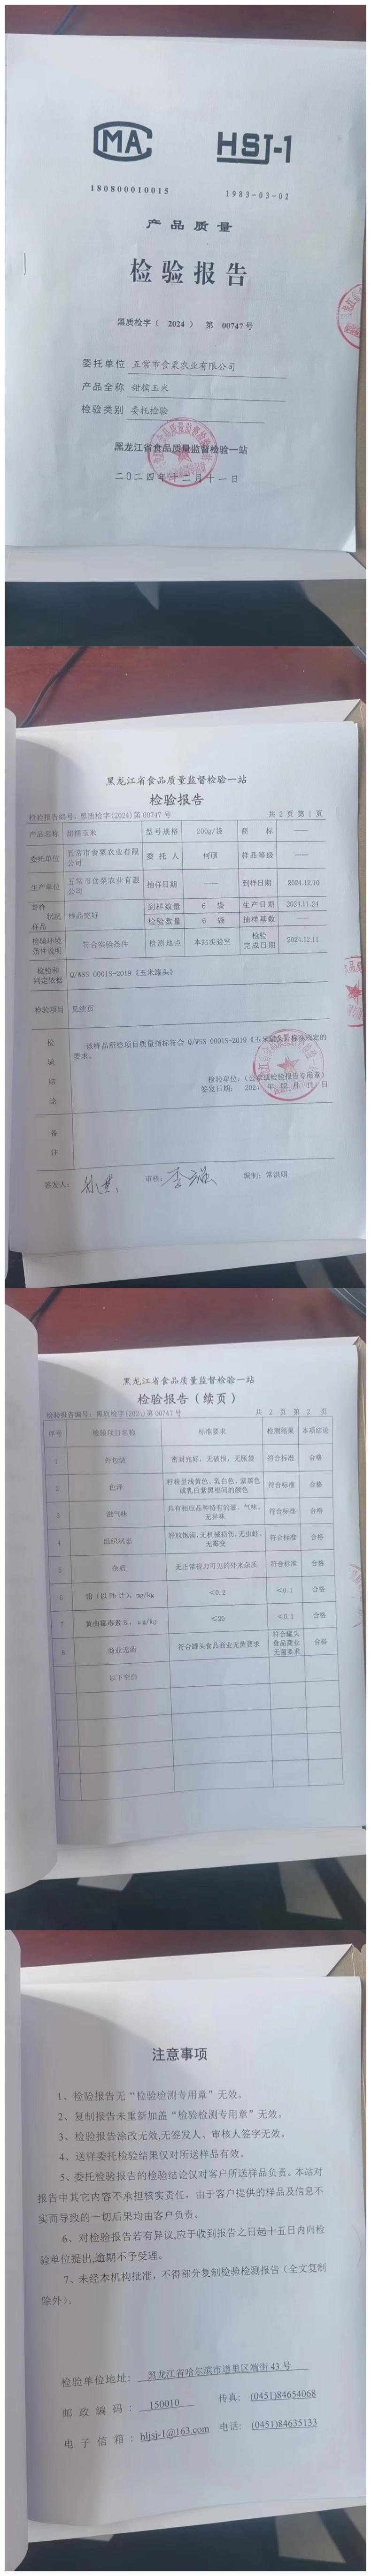 CMA
HSJ-1
180800010015
1983-03-02
产品质量
检验报告
黑质检字（ 2024 ） 第 00747号
委托单位 五常市食粟农业有限公司
产品全称 甜糯玉米
检验类别 委托检验
黑龙江省食品质量监督检验一站
二〇二四年十二月十一日
黑龙江省食品质量监督检验一站
检验报告
检验报告编号：黑质检字(2024)第00747号 共 2 页 第 1 页
产品名称 甜糯玉米 型号规格 200g/袋 商 标 ——
委托单位 五常市食粟农业有限公司 委 托 人 何硕 样品等级 ——
生产单位 五常市食粟农业有限公司 抽样日期 —— 到样日期 2024.12.10
封样状况样品 样品完好 到样数量 6 袋 生产日期 2024.11.24
检验数量 6 袋 抽样基数 ——
检验环境条件说明 符合实验条件 检测地点 本站实验室 检验完成日期 2024.12.11
检验和判定依据 Q/WSS 0001S-2019《玉米罐头》
检验项目 见续页
检验结论 该样品所检项目质量指标符合 Q/WSS 0001S-2019《玉米罐头》标准规定的
要求。
检验单位：(公章或检验报告专用章)
签发日期： 2024 年 12 月 11 日
备注
签发人： 审核： 编制：常洪娟
黑龙江省食品质量监督检验一站
检验报告（续页）
检验报告编号：黑质检字(2024)第00747号 共 2 页 第 2 页
序号 检验项目名称 标准要求 检测结果 本项结论
1 外包装 密封完好，无破损，无胀袋 符合标准 合格
2 色泽 籽粒呈浅黄色、乳白色、紫黑色或乳白紫黑相间的颜色 符合标准 合格
3 滋气味 具有相应品种特有的滋、气味，无异味 符合标准 合格
4 组织状态 籽粒饱满，无机械损伤，无虫蛀，无霉变 符合标准 合格
5 杂质 无正常视力可见的外来杂质 符合标准 合格
6 铅（以Pb计），mg/kg ＜0.2 ＜0.1 合格
7 黄曲霉毒素B₁，μg/kg ≤20 ＜0.1 合格
8 商业无菌 符合罐头食品商业无菌要求 符合罐头食品商业无菌要求 合格
以下空白
注意事项
1、检验报告无“检验检测专用章”无效。
2、复制报告未重新加盖“检验检测专用章”无效。
3、检验报告涂改无效,无签发人、审核人签字无效。
4、送样委托检验结果仅对所送样品有效。
5、委托检验报告的检验结论仅对客户所送样品负责。本站对
报告中其它内容不承担核实责任，由于客户提供的样品及信息不
实而导致的一切后果均由客户负责。
6、对检验报告若有异议,应于收到报告之日起十五日内向检
验单位提出,逾期不予受理。
7、未经本机构批准，不得部分复制检验检测报告（全文复制
除外）。
检验单位地址： 黑龙江省哈尔滨市道里区端街43号
邮政编码： 150010 传真： (0451)84654068
电子信箱：hljsj-1@163.com 电话： (0451)84635133